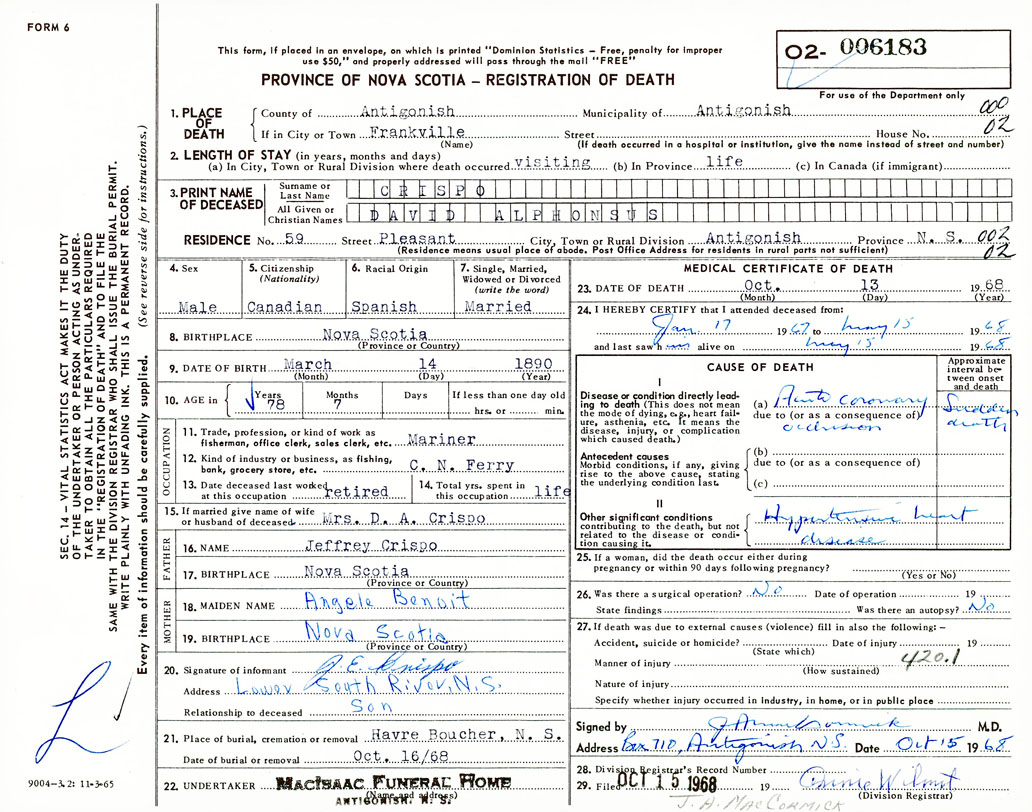 FORM 6
This form, if placed in an envelope, on which is printed "Dominion Statistics – Free, penalty for improper
use $50," and properly addressed will pass through the mail "FREE"
PROVINCE OF NOVA SCOTIA – REGISTRATION OF DEATH
02- 006183
For use of the Department only
000
02
1. PLACE OF DEATH
County of Antigonish Municipality of Antigonish
If in City or Town Frankville Street House No.
(Name) (If death occurred in a hospital or institution, give the name instead of street and number)
2. LENGTH OF STAY (in years, months and days)
(a) In City, Town or Rural Division where death occurred visiting (b) In Province life (c) In Canada (if immigrant)
3. PRINT NAME OF DECEASED
Surname or Last Name CRISPO
All Given or Christian Names DAVID ALPHONSUS
RESIDENCE No. 59 Street Pleasant City, Town or Rural Division Antigonish Province N. S. 002
(Residence means usual place of abode. Post Office Address for residents in rural parts not sufficient) 02
4. Sex
Male
5. Citizenship
(Nationality)
Canadian
6. Racial Origin
Spanish
7. Single, Married,
Widowed or Divorced
(write the word)
Married
8. BIRTHPLACE Nova Scotia
(Province or Country)
9. DATE OF BIRTH March 14 1890
(Month) (Day) (Year)
10. AGE in Years Months Days If less than one day old
78 7 hrs. or min.
OCCUPATION
11. Trade, profession, or kind of work as
fisherman, office clerk, sales clerk, etc. Mariner
12. Kind of industry or business, as fishing,
bank, grocery store, etc. C. N. Ferry
13. Date deceased last worked
at this occupation retired
14. Total yrs. spent in
this occupation life
15. If married give name of wife
or husband of deceased Mrs. D. A. Crispo
FATHER
16. NAME Jeffrey Crispo
17. BIRTHPLACE Nova Scotia
(Province or Country)
MOTHER
18. MAIDEN NAME Angele Benoit
19. BIRTHPLACE Nova Scotia
(Province or Country)
20. Signature of informant D. E. Crispo
Address Lower South River, N.S.
Relationship to deceased Son
21. Place of burial, cremation or removal Havre Boucher, N. S.
Date of burial or removal Oct. 16/68
22. UNDERTAKER MACISAAC FUNERAL HOME
(Name and address)
ANTIGONISH, N. S.
MEDICAL CERTIFICATE OF DEATH
23. DATE OF DEATH Oct. 13 1968
(Month) (Day) (Year)
24. I HEREBY CERTIFY that I attended deceased from:
Jan. 17 1967 to May 15 1968
and last saw him alive on May 15 1968
CAUSE OF DEATH
Approximate
interval be-
tween onset
and death
I
Disease or condition directly lead-
ing to death (This does not mean
the mode of dying, e.g., heart fail-
ure, asthenia, etc. It means the
disease, injury, or complication
which caused death.)
(a) Acute coronary
due to (or as a consequence of)
occlusion
Sudden
death
Antecedent causes
Morbid conditions, if any, giving
rise to the above cause, stating
the underlying condition last.
(b)
due to (or as a consequence of)
(c)
II
Other significant conditions
contributing to the death, but not
related to the disease or condi-
tion causing it.
Hypertensive heart
disease
25. If a woman, did the death occur either during
pregnancy or within 90 days following pregnancy?
(Yes or No)
26. Was there a surgical operation? No Date of operation 19
State findings Was there an autopsy? No
27. If death was due to external causes (violence) fill in also the following: –
Accident, suicide or homicide? Date of injury 19
(State which)
420.1
Manner of injury
(How sustained)
Nature of injury
Specify whether injury occurred in Industry, in home, or in public place
Signed by M.D.
Address Box 710, Antigonish N.S. Date Oct 15 1968
28. Division Registrar's Record Number
29. Filed OCT 15 1968 19
(Division Registrar)
J. A. MacCORMICK
SEC. 14 – VITAL STATISTICS ACT MAKES IT THE DUTY
OF THE UNDERTAKER OR PERSON ACTING AS UNDER-
TAKER TO OBTAIN ALL THE PARTICULARS REQUIRED
IN THE "REGISTRATION OF DEATH" AND TO FILE THE
SAME WITH THE DIVISION REGISTRAR WHO SHALL ISSUE THE BURIAL PERMIT.
WRITE PLAINLY WITH UNFADING INK. THIS IS A PERMANENT RECORD.
Every item of information should be carefully supplied. (See reverse side for instructions.)
9004-3.2: 11-3-65